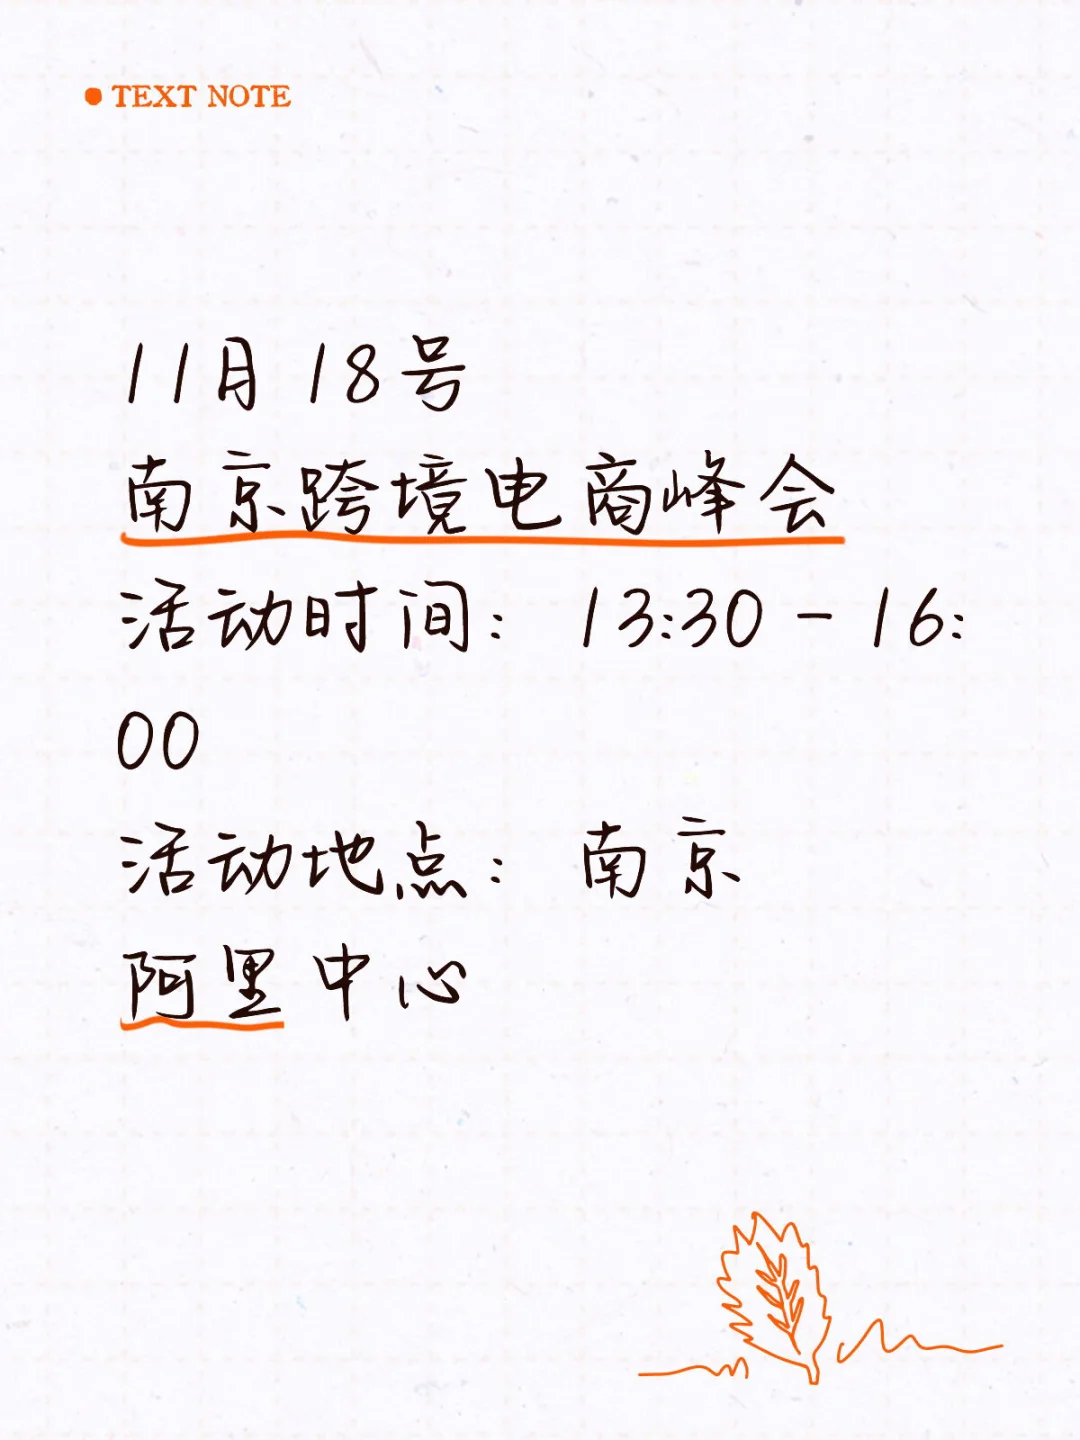 TEXT NOTE
11月18号
南京跨境电商峰会
活动时间：13:30-16:
00
活动地点：南京
阿里中心